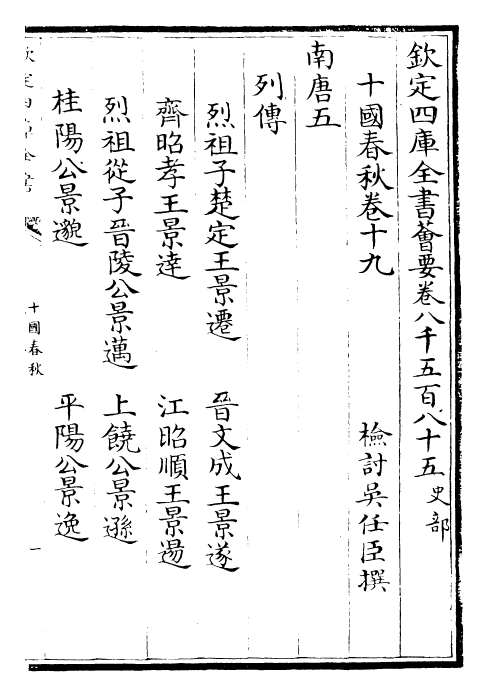 欽定四庫全書薈要卷八千五百八十五 史部
十國春秋卷十九 檢討吳任臣撰
南唐五
列傳
烈祖子楚定王景遷 晉文成王景遂
齊昭孝王景達 江昭順王景逿
烈祖從子晉陵公景邁 上饒公景遜
桂陽公景邈 平陽公景逸
十國春秋
一